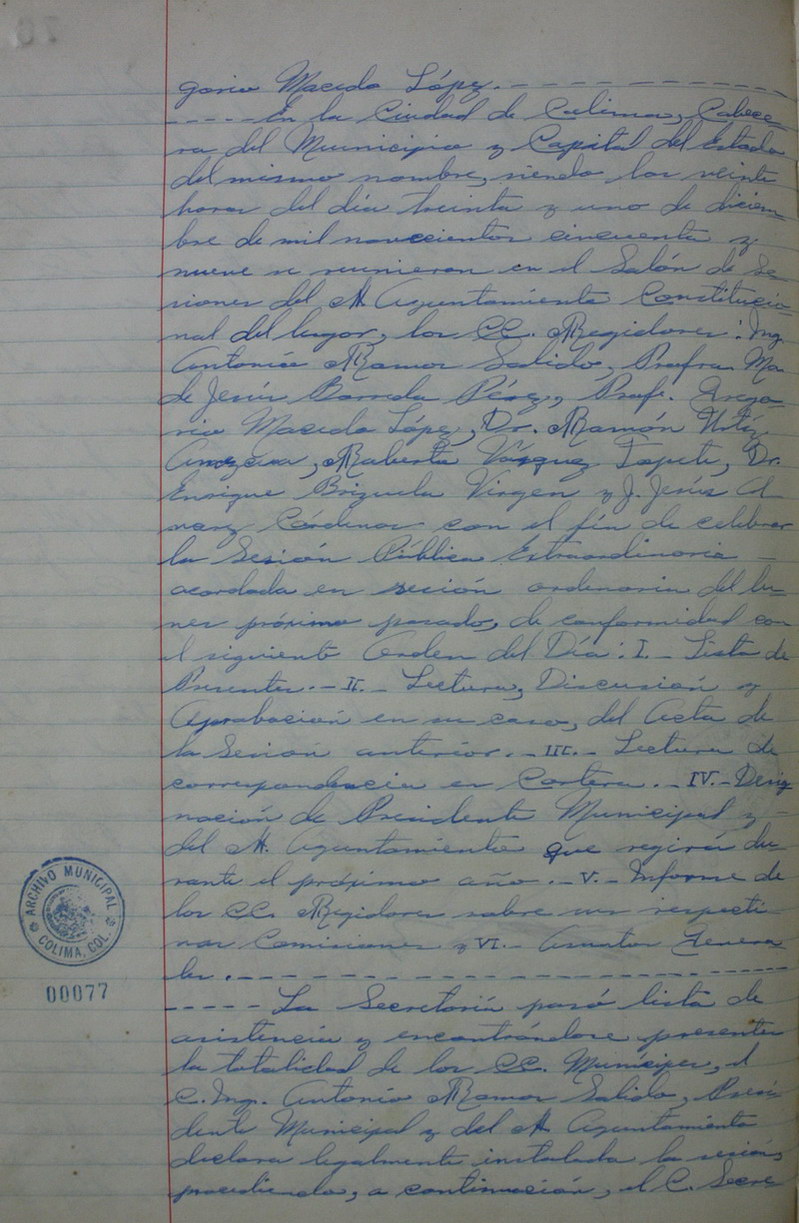 gorio Macedo López. - - - - - - - - - - - -
- - - - - En la Ciudad de Colima, Cabece-
ra del Municipio y Capital del Estado
del mismo nombre, siendo las veinte
horas del día treinta y uno de diciem-
bre de mil novecientos cincuenta y
nueve se reunieron en el Salón de Se-
siones del H. Ayuntamiento Constitucio-
nal del lugar, los CC. Regidores: Ing.
Antonio Ramos Salido, Profra. Ma.
de Jesús Barreda Pérez, Profr. Grego-
rio Macedo López, Dr. Ramón Ortíz
Roberto Vázquez Topete, Dr.
Enrique Brizuela Virgen y J. Jesús Al
varez Cárdenas con el fin de celebrar
la Sesión Pública Extraordinaria -
acordada en sesión ordinaria del lu-
nes próximo pasado, de conformidad con
el siguiente Orden del Día: I.- Lista de
Presentes.- II.- Lectura, Discusión y
Aprobación en su caso, del Acta de
la Sesión anterior.- III.- Lectura de
correspondencia en Cartera.- IV.- Desig
nación de Presidente Municipal y -
del H. Ayuntamiento que regirá du-
rante el próximo año.- V.- Informe de
los CC. Regidores sobre sus respecti-
vas Comisiones y VI.- Asuntos Genera
les. - - - - - - - - - - - - - - - - - - - -
- - - - - La Secretaría pasó lista de
asistencia y encontrándose presentes
la totalidad de los CC. Munícipes, el
C. Ing. Antonio Ramos Salido, Presi-
dente Municipal y del H. Ayuntamiento
declara legalmente instalada la sesión,
procediendo, a continuación, el C. Secre
ARCHIVO MUNICIPAL
COLIMA, COL.
00077